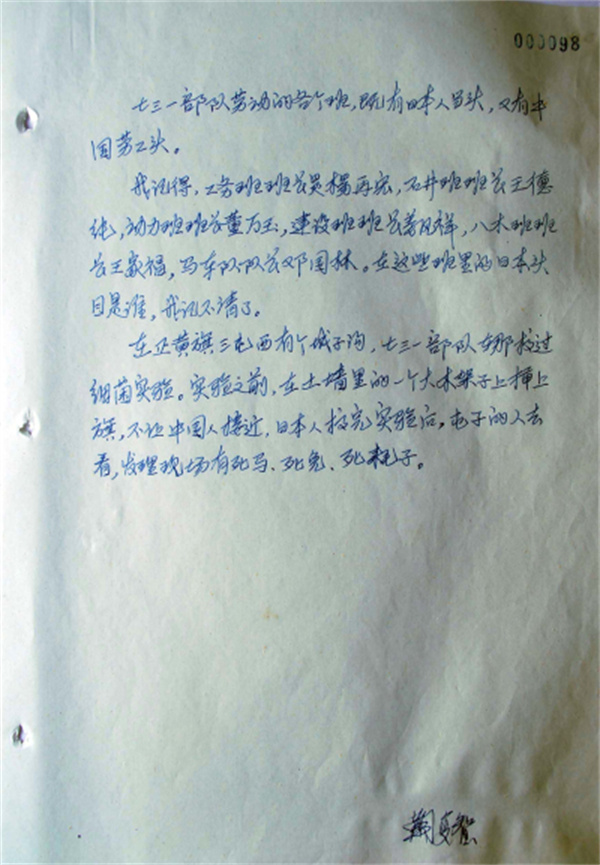 000098
七三一部队劳动的各个班，既有日本人当头，又有中
国劳工头。
我记得，工务班班长是杨再宏，石井班班长王德
纯，动力班班长董万玉，建设班班长 凤祥，八木班班
长王家福，马车队队长邓国林。在这些班里的日本头
目是谁，我记不清了。
在正黄旗三屯西有个城子沟，七三一部队在那搞过
细菌实验。实验之前，在土墙里的一个大木架子上插上
旗，不让中国人接近，日本人搞完实验后，屯子的人去
看，发现现场有死马、死兔、死耗子。